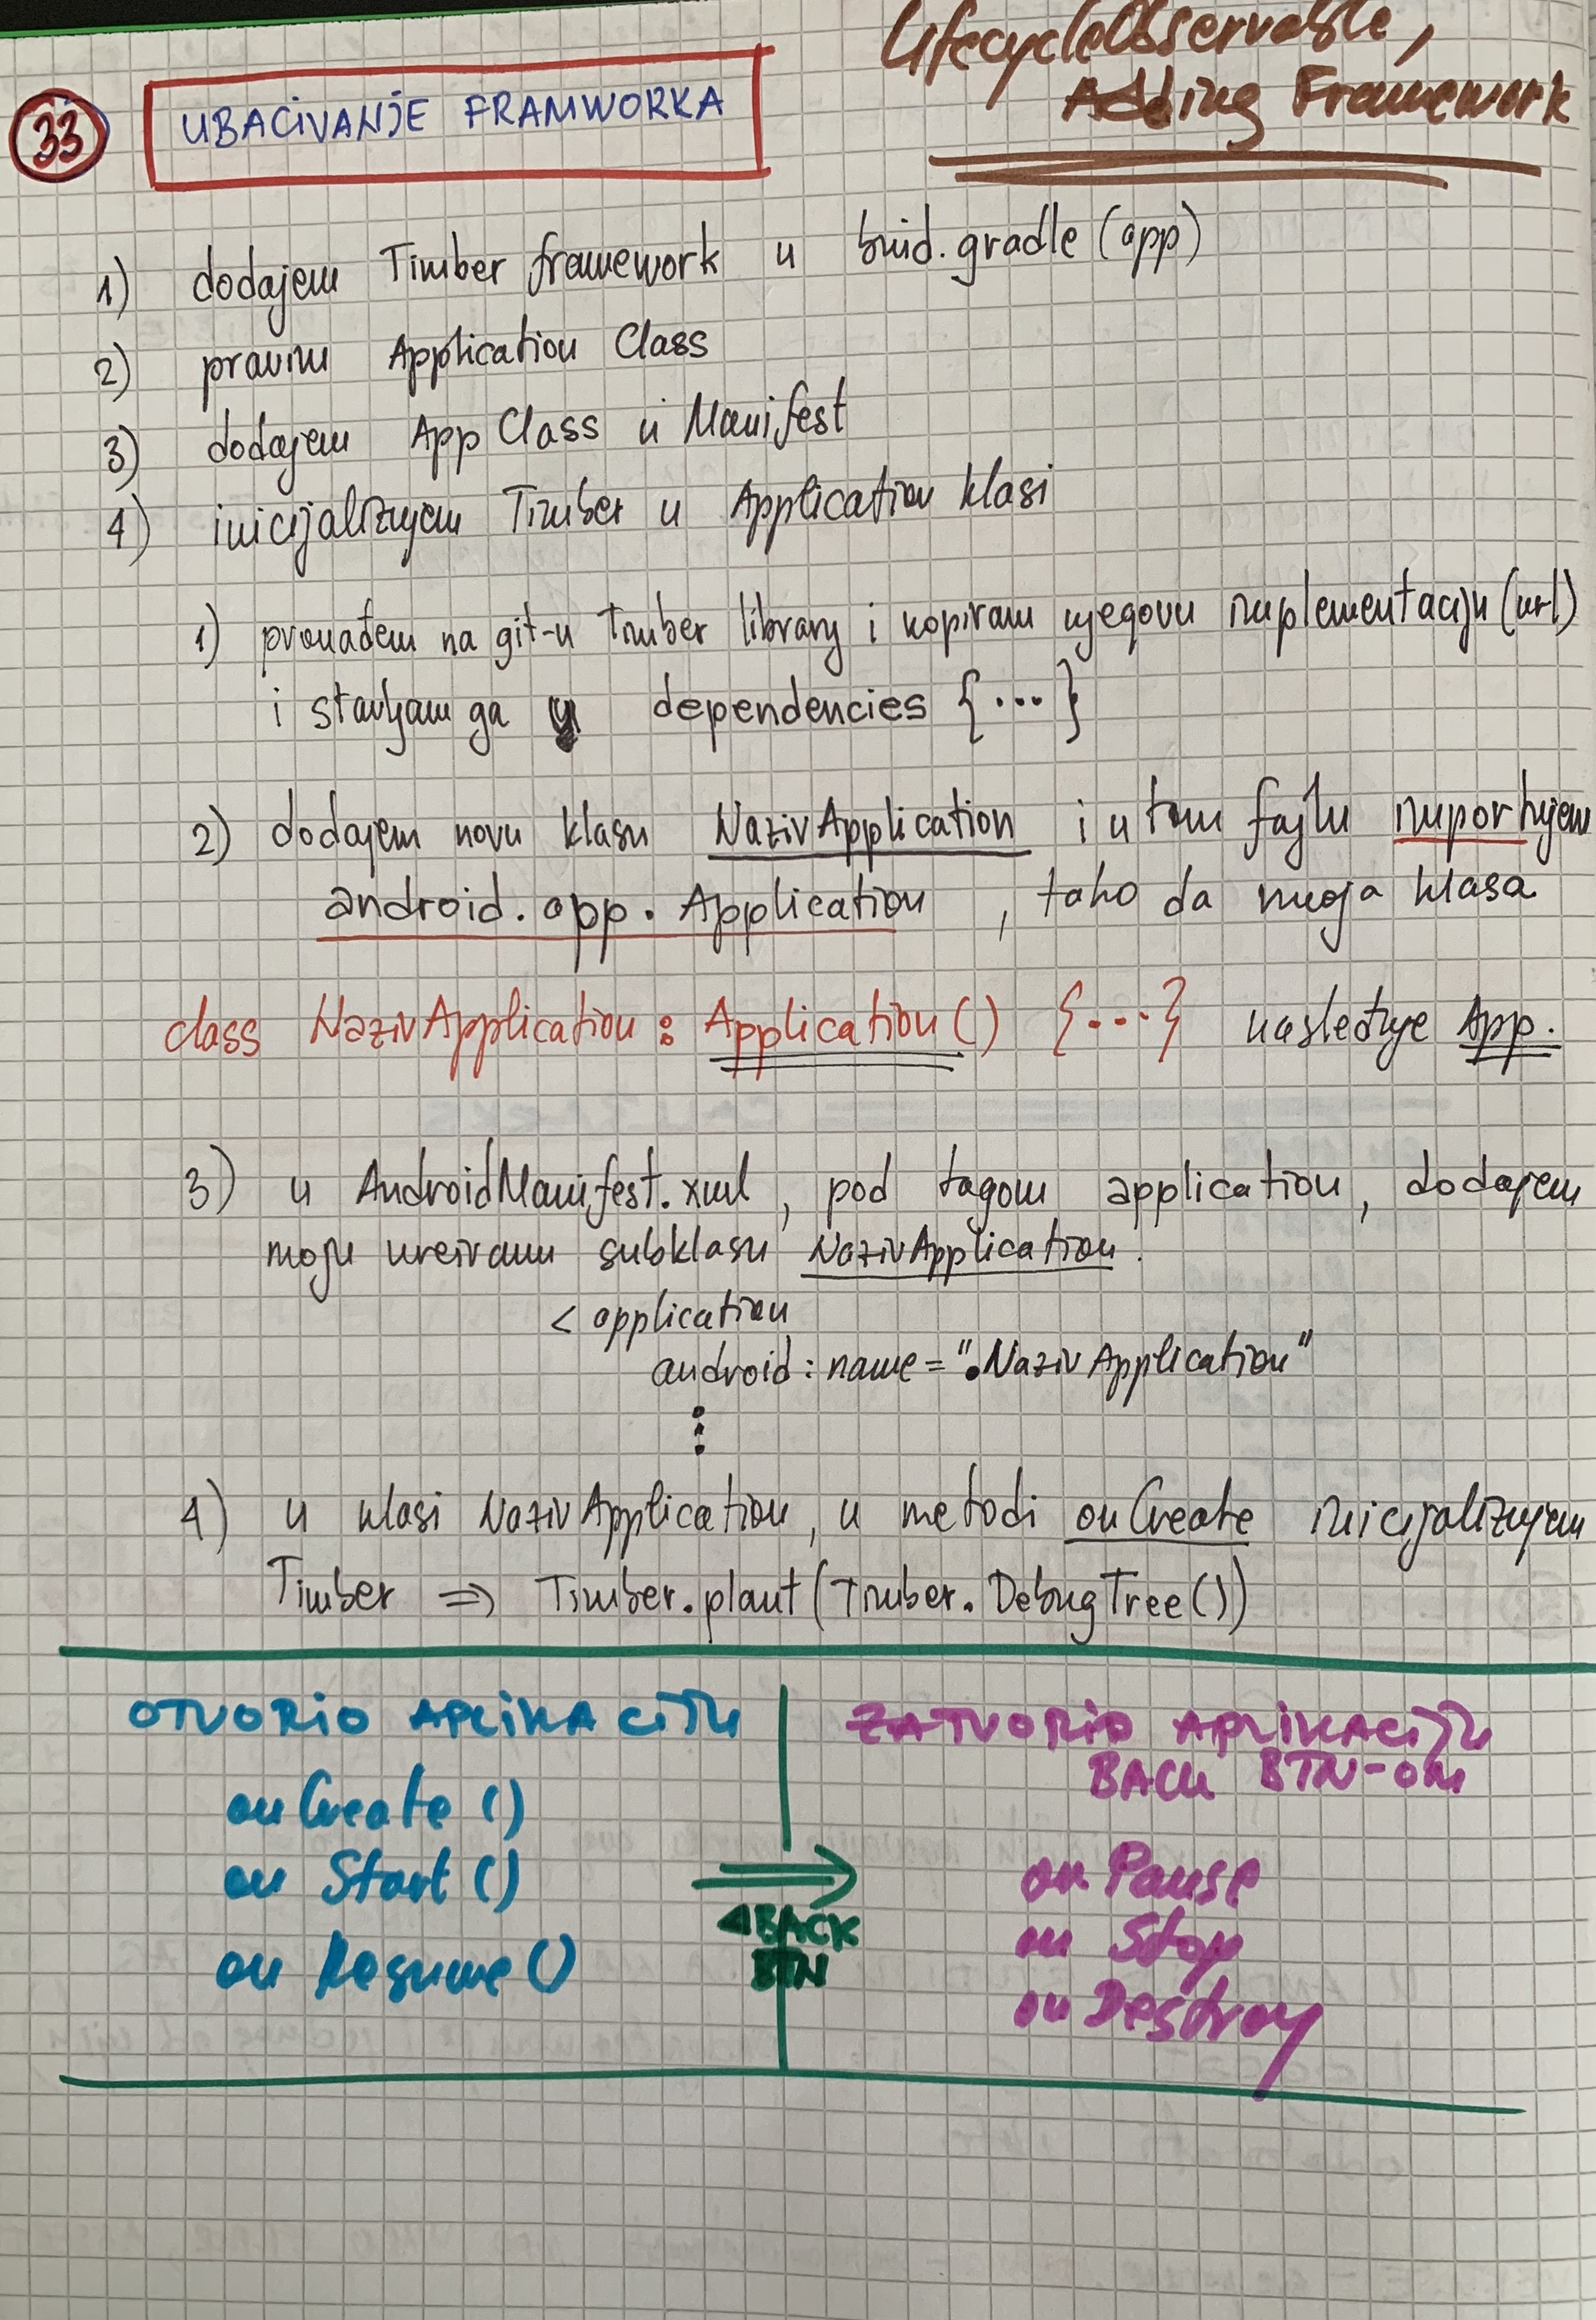 LifecycleObservable,
Adding Framework
33
UBACIVANJE FRAMWORKA
1) dodajem Timber framework u buid.gradle (app)
2) pravim Application Class
3) dodajem App Class u Manifest
4) inicijalizujem Timber u Application klasi
1) pronađem na git-u Timber library i kopiram njegovu implementaciju (url)
i stavljam ga u dependencies {...}
2) dodajem novu klasu NazivApplication i u tom fajlu importujem
android.app.Application , tako da moja klasa
class NazivApplication : Application() {...} nasleđuje App.
3) u AndroidManifest.xml, pod tagom application, dodajem
moju kreiranu subklasu NazivApplication.
< application
android:name=".NazivApplication"
⋮
4) u klasi NazivApplication, u metodi onCreate inicijalizujem
Timber => Timber.plant(Timber.DebugTree())
OTVORIO APLIKACIJU
onCreate ()
on Start ()
on Resume ()
BACK
BTN
ZATVORIO APLIKACIJU
BACK BTN-OM
on Pause
on Stop
on Destroy